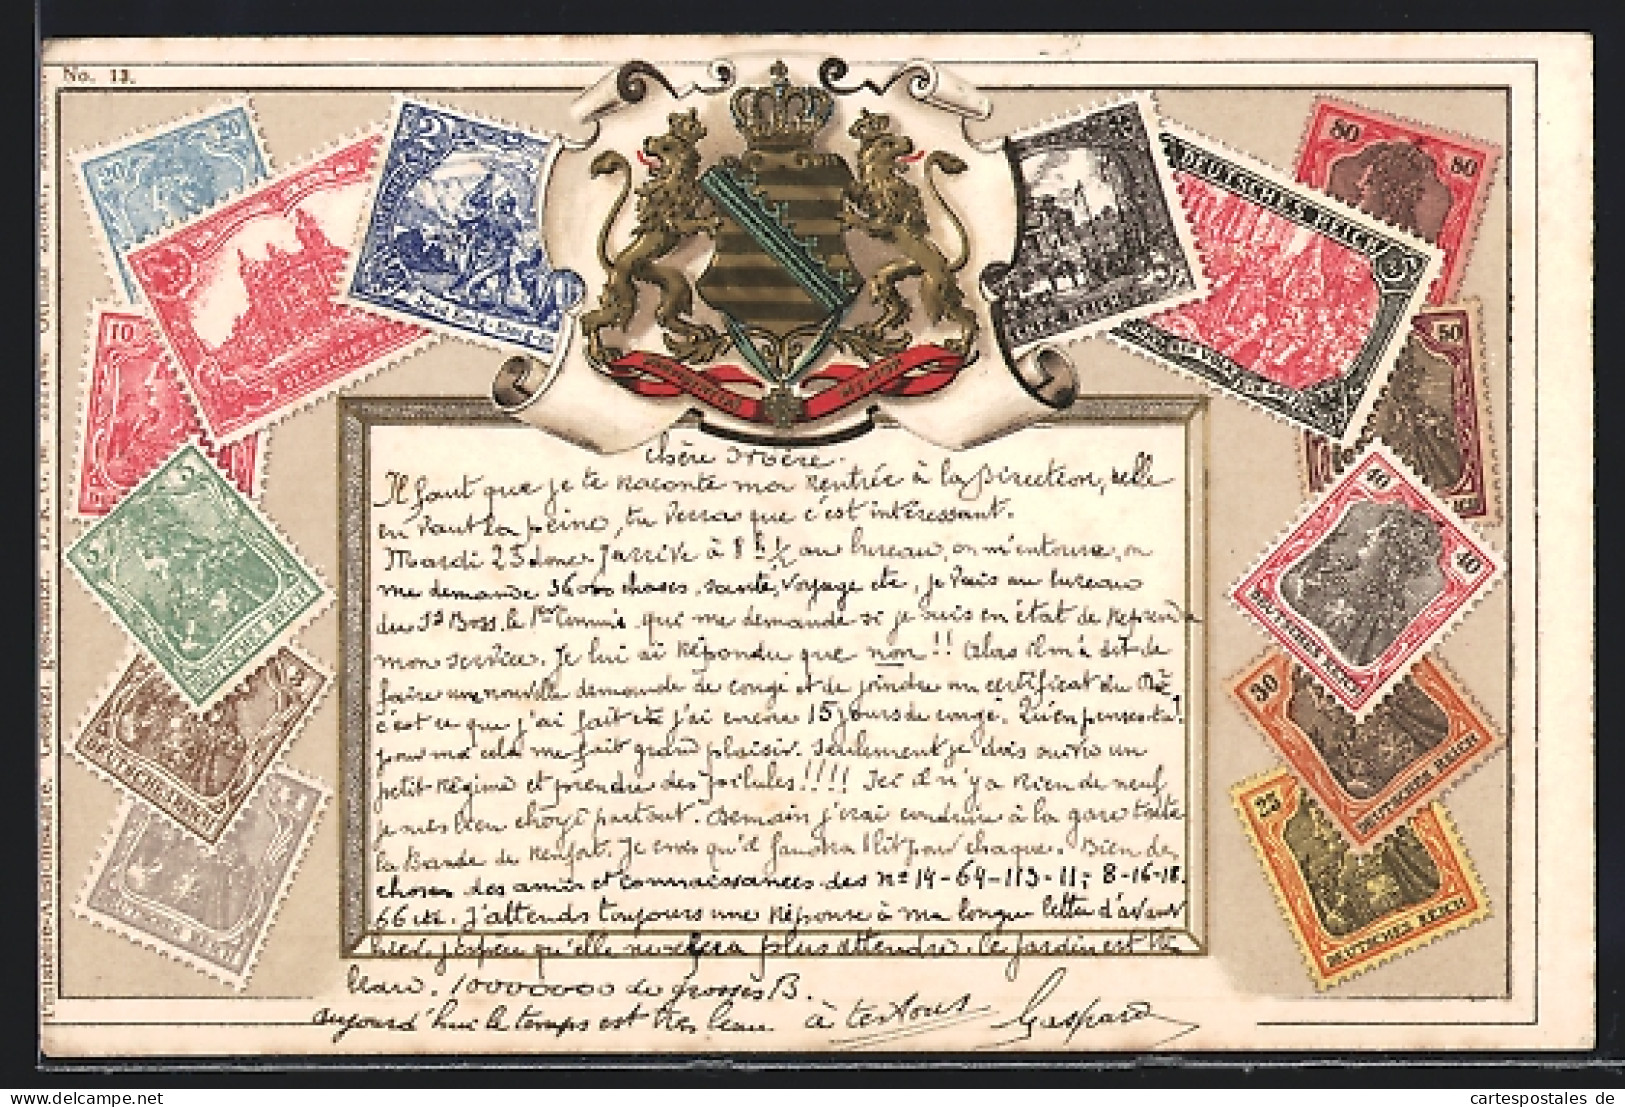 No. 13.
20 20
2
80 80
DEUTSCHES REICH
5
50
10
DEUTSCHES REICH
5
DEUTSCHES REICH
40 40
DEUTSCHES REICH
30
DEUTSCHES REICH
DEUTSCHES REICH
25
DEUTSCHES REICH
chère Mère.
Il faut que je te raconte ma rentrée à la Direction, elle
en vaut la peine, tu verras que c'est intéressant.
Mardi 25 donc j'arrive à 8 h ½ au bureau, on m'entoure, on
me demande 36000 choses, santé, voyage etc, je vais au bureau
du Boss. le 1er Commis qui me demande si je suis en état de reprendre
mon service. Je lui ai répondu que non!! Alors il m'a dit de
faire une nouvelle demande de congé et de joindre un certificat du
c'est ce que j'ai fait et j'ai encore 15 jours de congé. Qu'en penses-tu?
pour moi cela me fait grand plaisir. Seulement je dois suivre un
petit régime et prendre des pilules!!!! Ici il n'y a rien de neuf
je suis bien choyé partout. Demain j'irai conduire à la gare toute
la Bande de Renfort. Je crois qu'il faudra 1 lit pour chaque. Bien des
choses des amis et connaissances des nos 14-64-113-11-8-16-18.
66 etc. J'attends toujours une réponse à ma longue lettre d'avant
hier. j'espère qu'elle ne se fera plus attendre. Le jardin est très
beau. 10000000 de grosses B.
aujourd'hui le temps est très beau à tertous Gaspard
cartespostales de